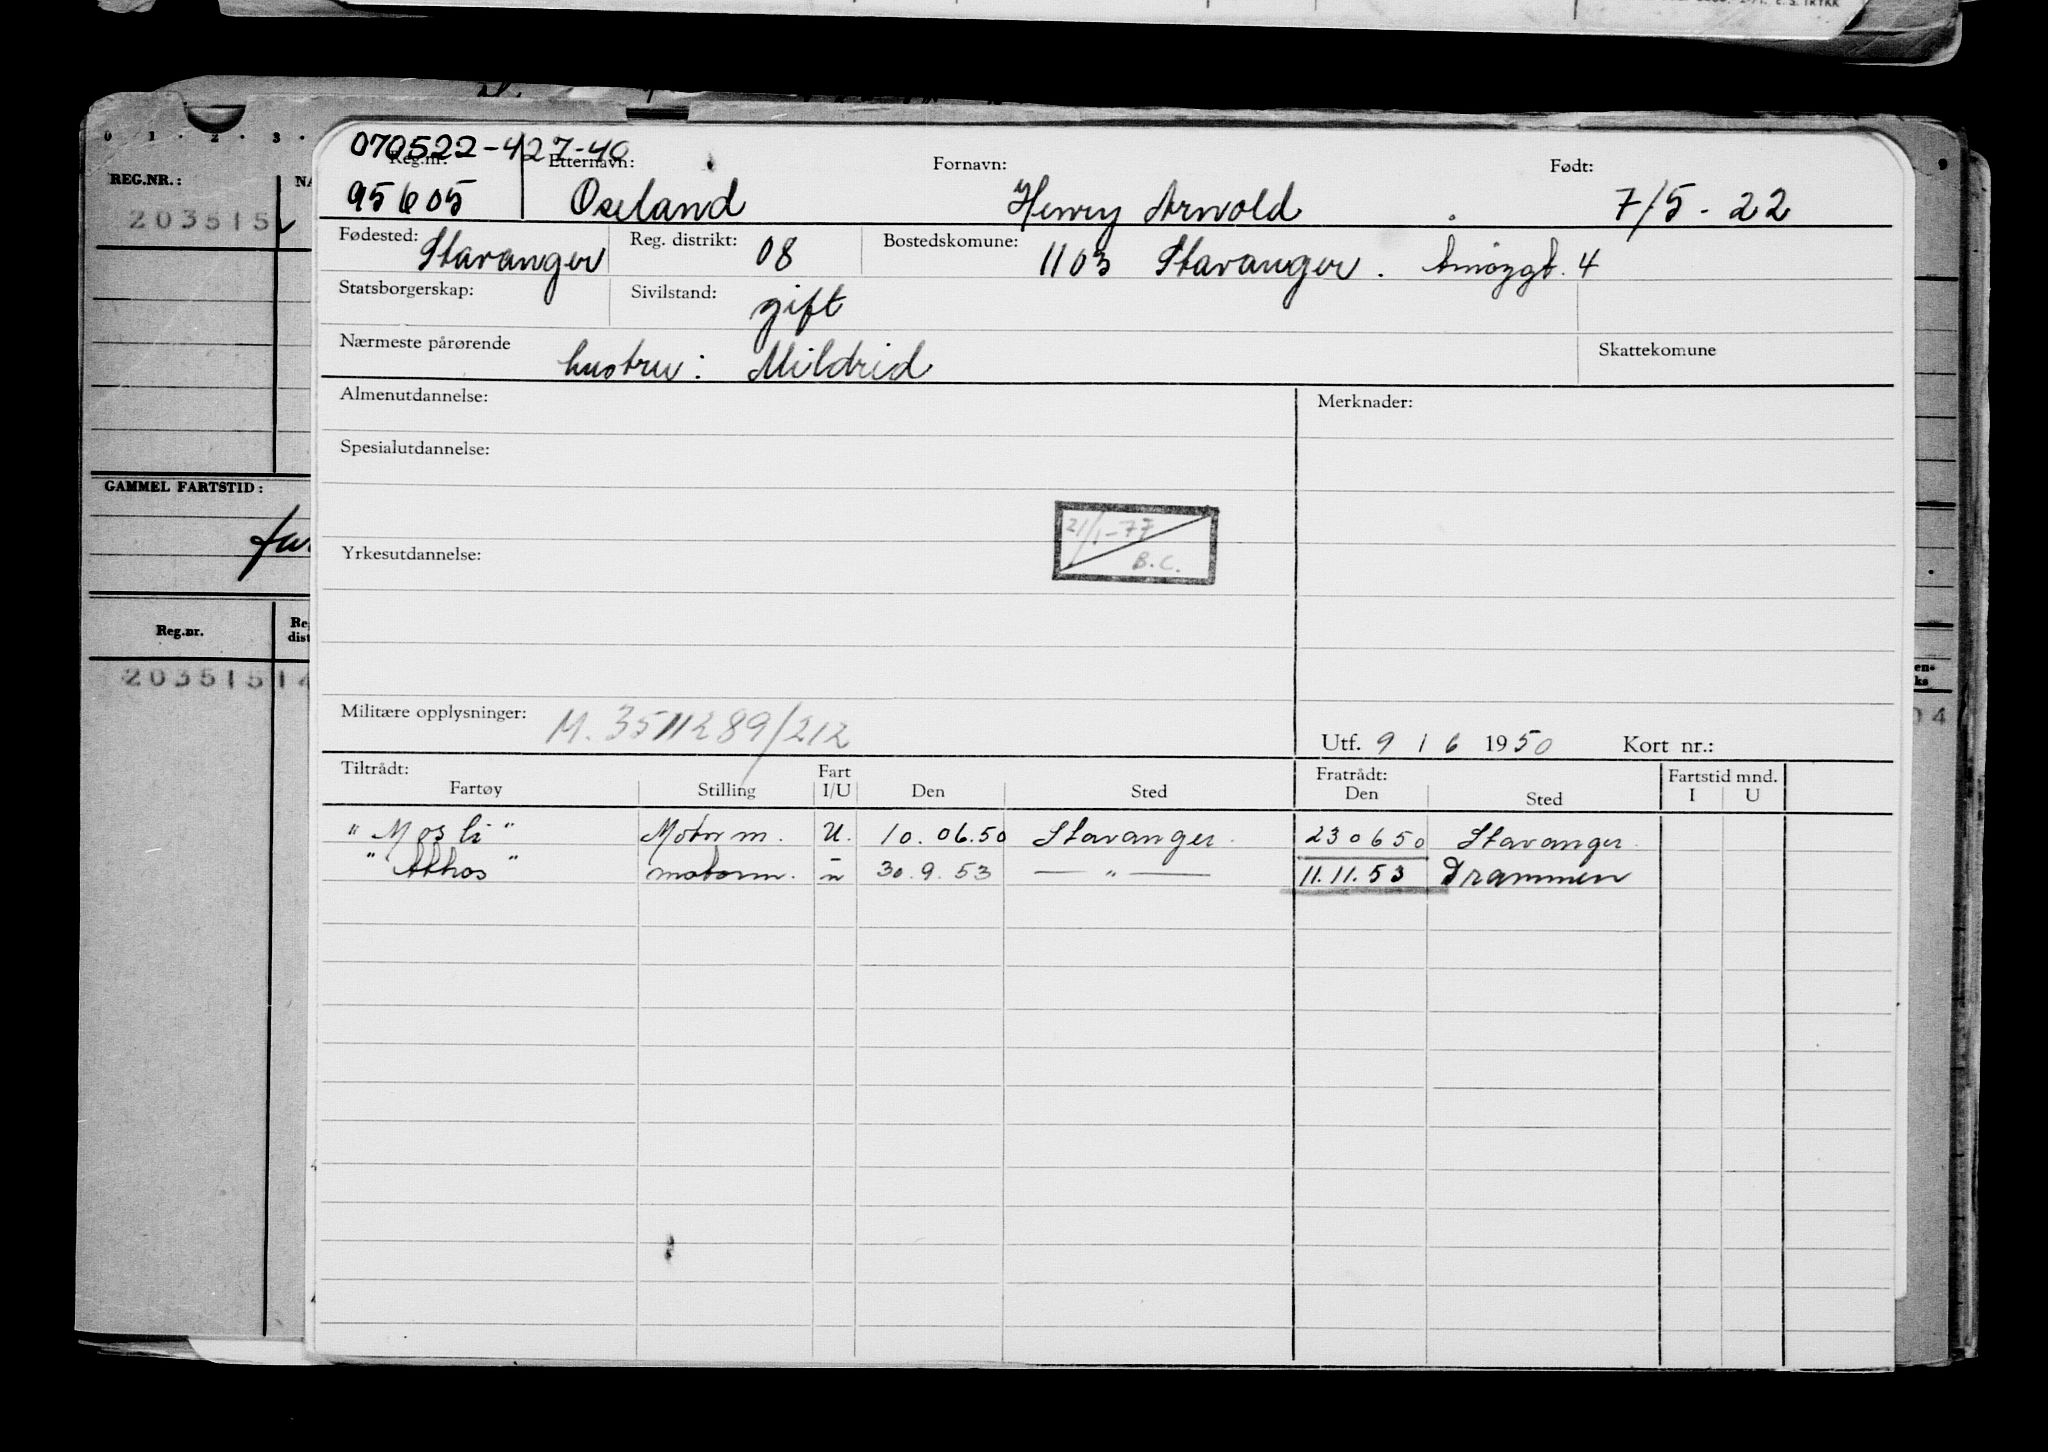 0 1 2 3
070522-427-40
Reg.nr: Etternavn: Fornavn: Født:
95605 Oseland Henry Arnold 7/5-22
Fødested: Stavanger Reg. distrikt: 08 Bostedskomune: 1103 Stavanger. 4
Statsborgerskap: Sivilstand: gift
Nærmeste pårørende hustru: Mildrid Skattekomune
Almenutdannelse: Merknader:
Spesialutdannelse:
21/1-77
Yrkesutdannelse: B.C.
Militære opplysninger: M. 3511289/212
Utf. 9 1 6 1950 Kort nr.:
Tiltrådt: Fart Fratrådt: Fartstid mnd.
Fartøy Stilling I/U Den Sted Den Sted I U
"Mosli" Motorm. U. 10.06.50 Stavanger. 230650 Stavanger.
"Athos" motorm. u 30.9.53 — " — 11.11.53 Drammen
REG.NR.: NA
203515
GAMMEL FARTSTID:
Reg.nr. Re
dist
203515 14
9
en-
ks
04